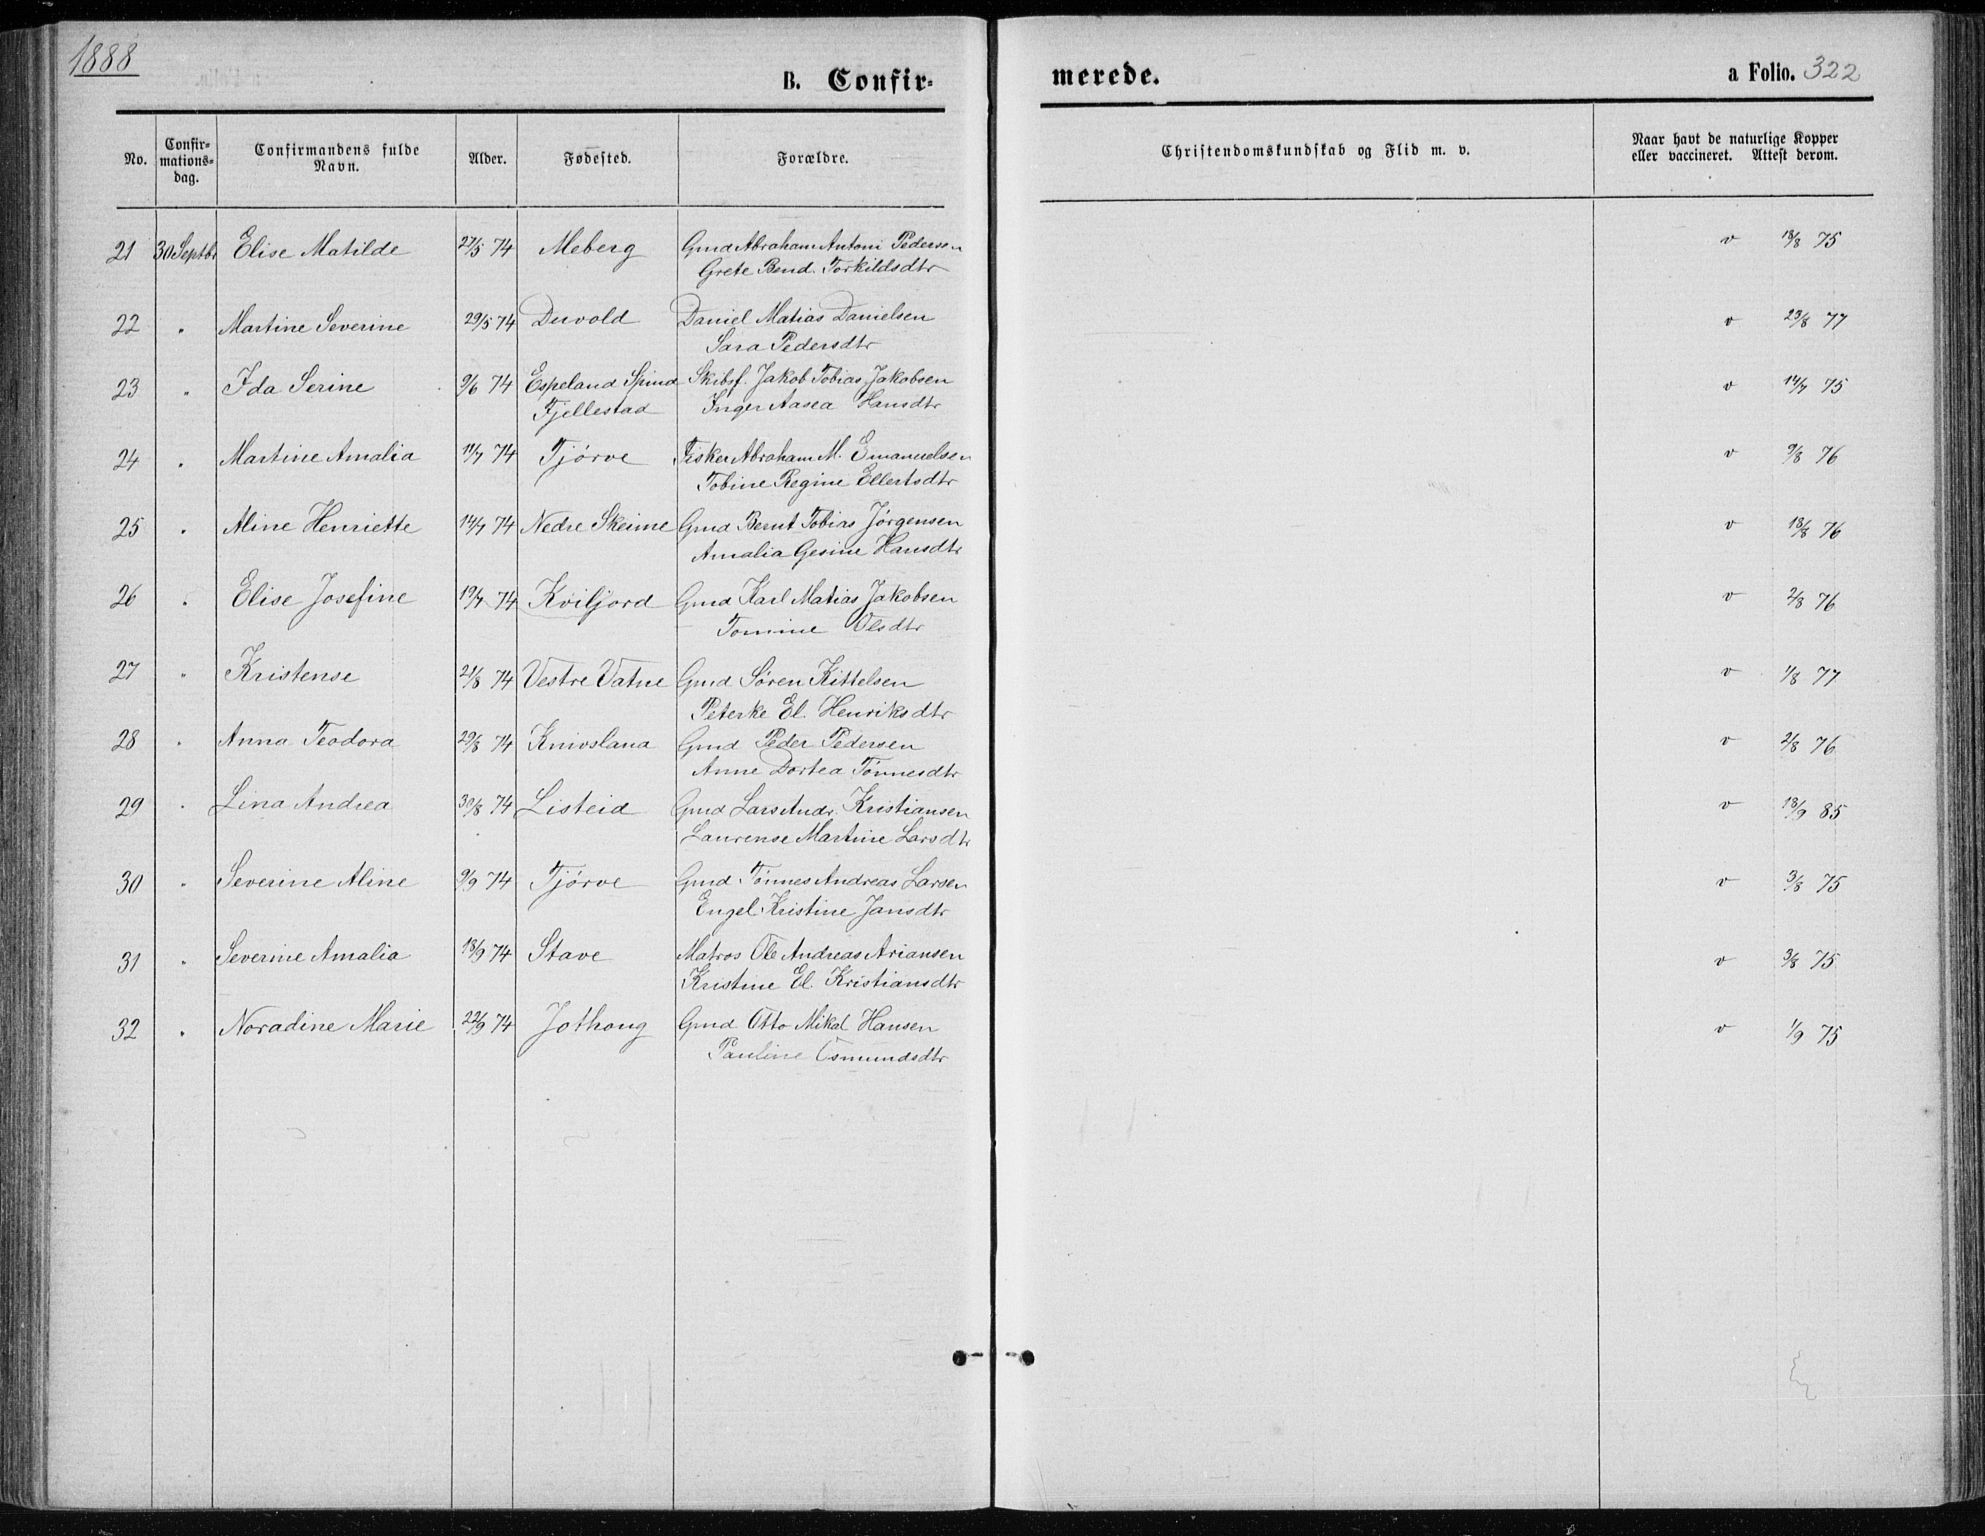 1888
B. Confir-
merede.
a Folio. 322
No. Confir-mations-dag. Confirmandens fulde Navn. Alder. Fødested. Forældre. Christendomskundskab og Flid m. v. Naar havt de naturlige Kopper eller vaccineret. Attest derom.
21 30 Septbr Elise Matilde 27/5 74 Meberg Gmd Abraham Antoni Pedersen v 18/8 75
Grete Bend. Torkildsdtr
22 " Martine Severine 29/5 74 Duvold Daniel Matias Danielsen v 23/8 77
Sara Pedersdtr
23 " Ida Serine 9/6 74 Espeland Spind Skibsf. Jakob Tobias Jakobsen v 14/7 75
Fjellestad Inger Aasea Hansdtr
24 " Martine Amalia 11/7 74 Tjørve Fisker Abraham M. Emanuelsen v 9/8 76
Tobine Regine Ellertsdtr
25 " Aline Henriette 14/7 74 Nedre Skeime Gmd Bernt Tobias Jørgensen v 18/8 76
Amalia Gesine Hansdtr
26 " Elise Josefine 19/7 74 Kviljord Gmd Karl Matias Jakobsen v 2/8 76
Tomine Olsdtr
27 " Kristense 21/8 74 Vestre Vatne Gmd Søren Kittelsen v 1/8 77
Peterke El. Henriksdtr
28 " Anna Teodora 29/8 74 Knivsland Gmd Peder Pedersen v 2/8 76
Anne Dortea Tønnesdtr
29 " Lina Andrea 30/8 74 Listeid Gmd Lars Andr. Kristiansen v 18/9 85
Laurense Martine Larsdtr
30 " Severine Aline 9/9 74 Tjørve Gmd Tønnes Andreas Larsen v 3/8 75
Engel Kristine Jansdtr
31 " Severine Amalia 18/9 74 Stave Matros Ole Andreas Ariansen v 3/8 75
Kristine El. Kristiansdtr
32 " Noradine Marie 22/9 74 Jothoug Gmd Otto Mikal Hansen v 1/9 75
Pauline Osmundsdtr